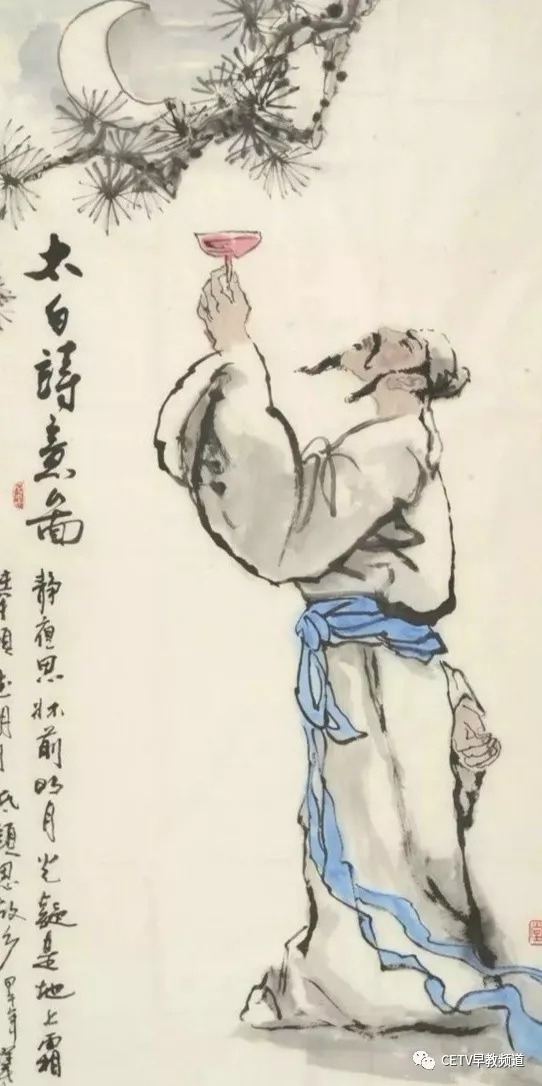 太白詩意圖
静夜思牀前明月光疑是地上霜
舉頭望明月低頭思故乡甲午年
CETV早教频道